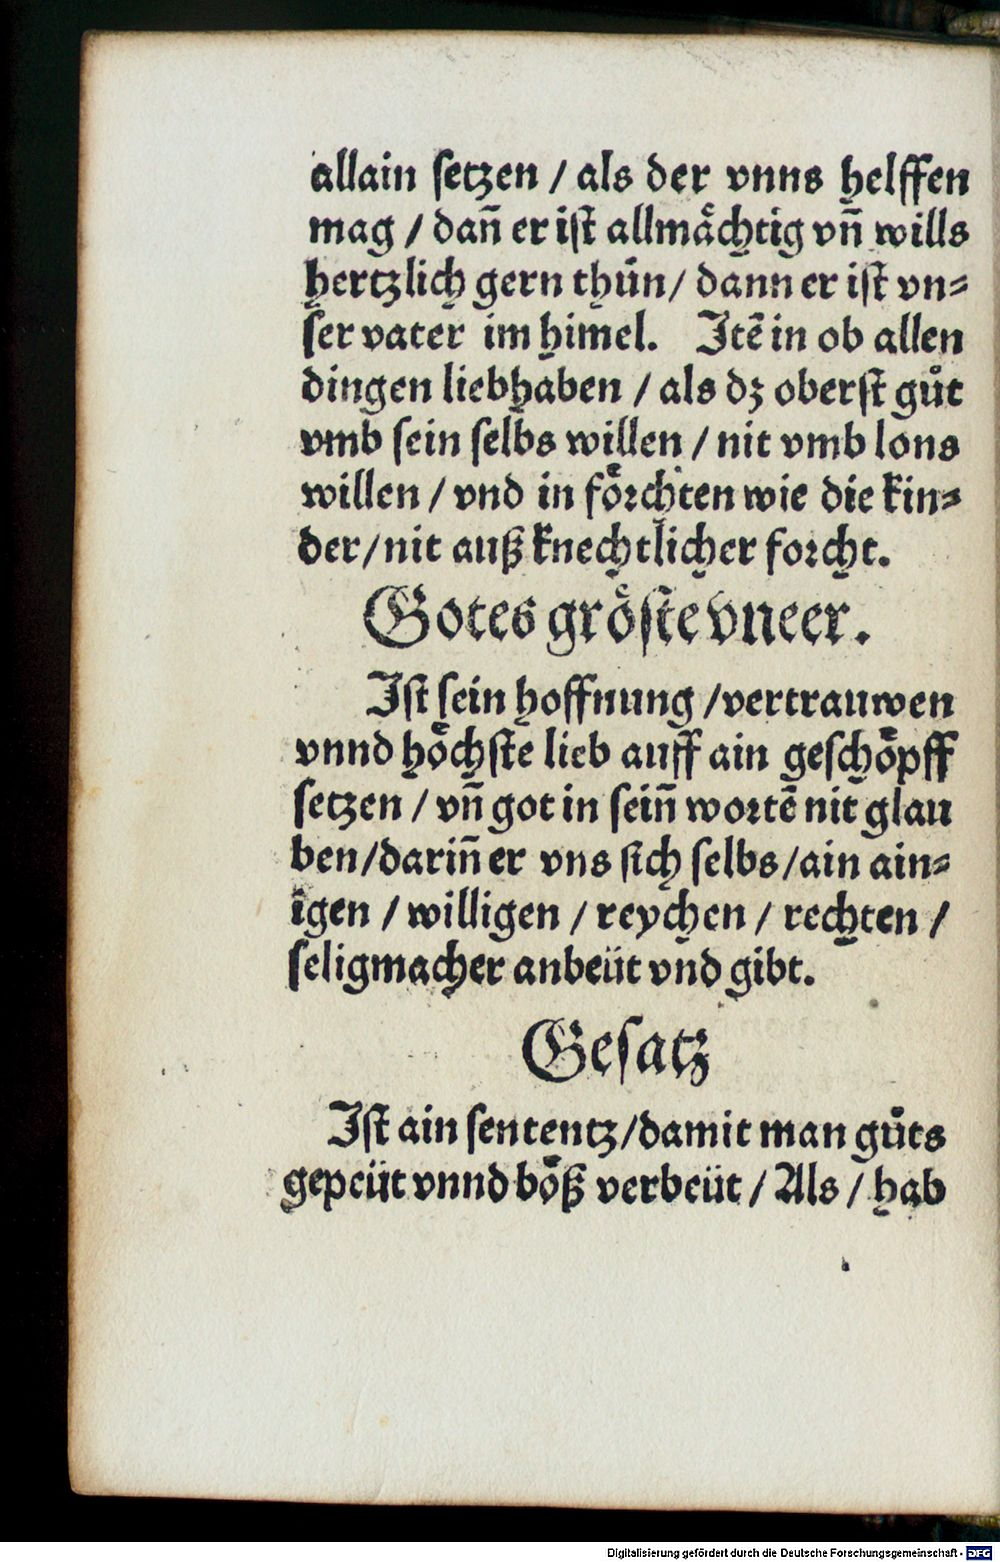 allain setzen / als der vnns helffen
mag / dañ er ist allmaͤchtig vñ wills
hertzlich gern thůn / dann er ist vn⸗
ser vater im himel. Jtē in ob allen
dingen liebhaben / als dz oberst gůt
vmb sein selbs willen / nit vmb lons
willen / vnd in foͤrchten wie die kin⸗
der / nit auß knechtlicher forcht.
Gotes groͤste vneer.
Jst sein hoffnung / vertrauwen
vnnd hoͤchste lieb auff ain geschoͤpff
setzen / vñ got in seiñ wortē nit glau
ben / dariñ er vns sich selbs / ain ain⸗
igen / willigen / reychen / rechten /
seligmacher anbeüt vnd gibt.
Gesatz
Jst ain sententz / damit man gůts
gepeüt vnnd boͤß verbeüt / Als / hab
Digitalisierung gefördert durch die Deutsche Forschungsgemeinschaft - DFG